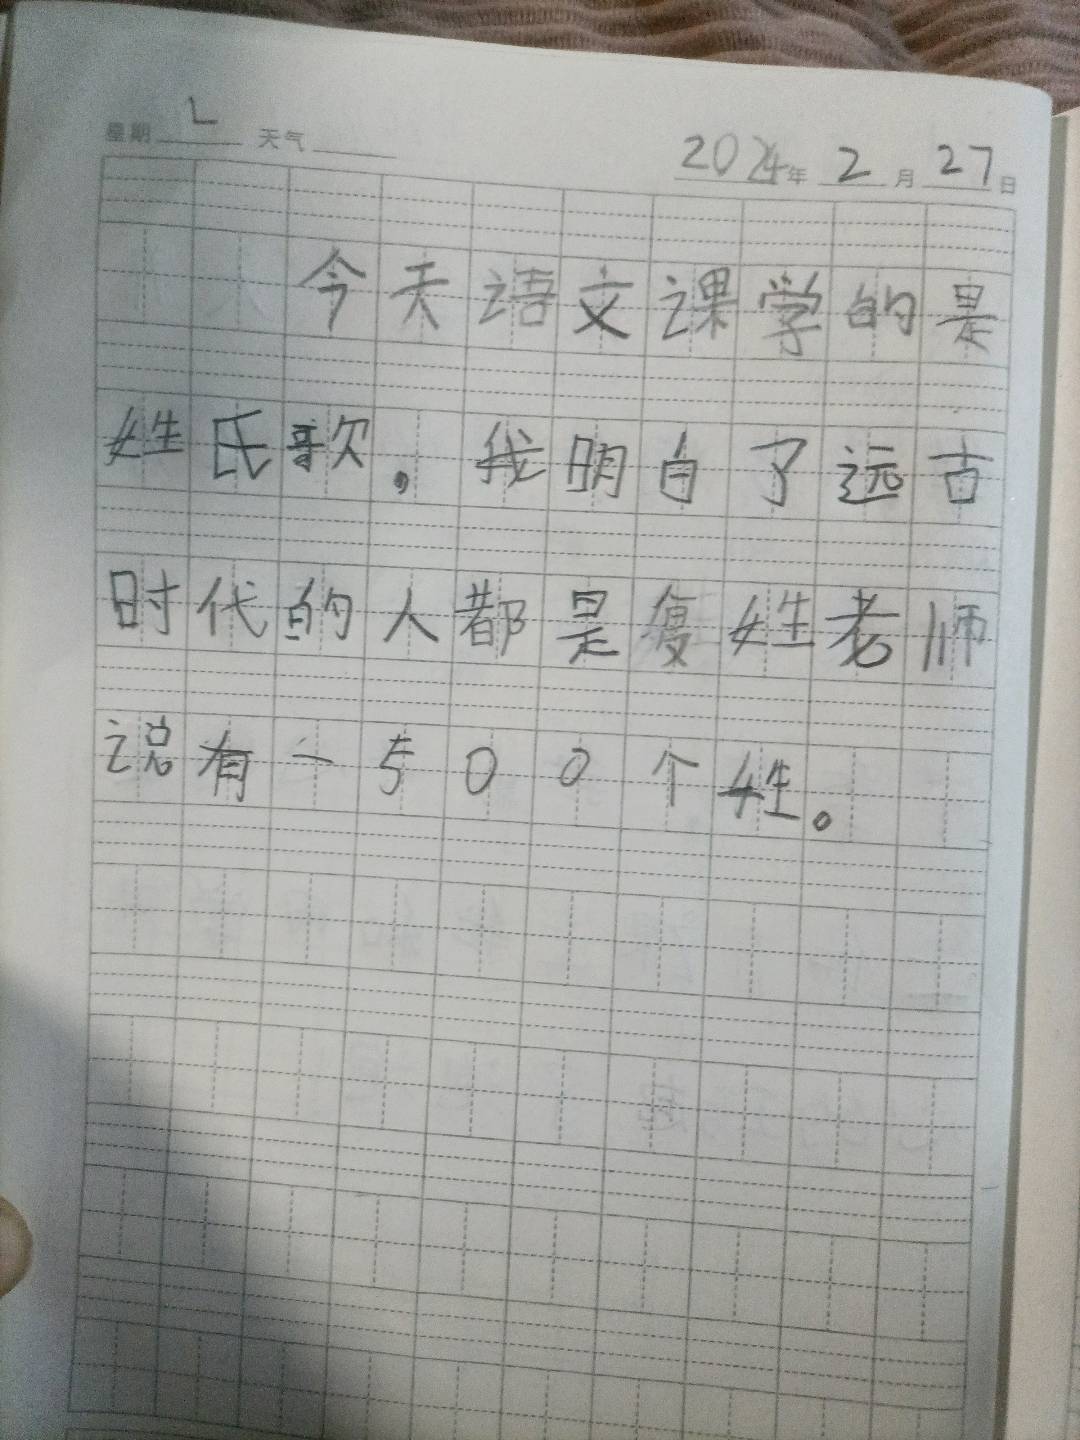 星期 天气 2024年 2月 27日
今天语文课学的是
姓氏歌，我明白了远古
时代的人都是复姓老师
说有一500个姓。